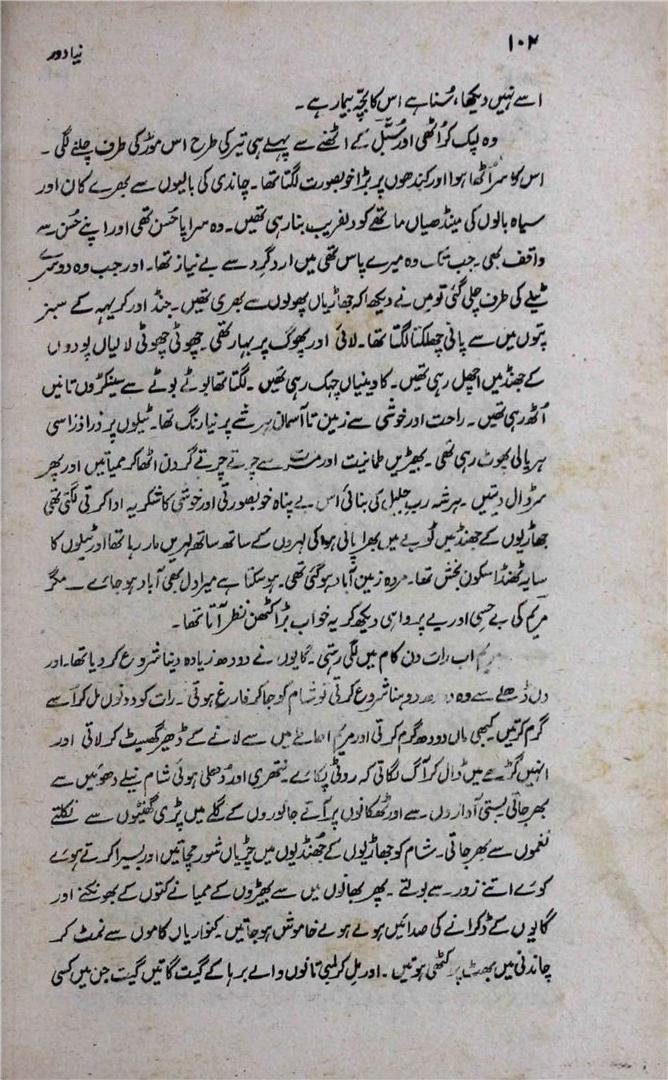 ۱۰۲
نیا دور
اسے نہیں دیکھا، سُنا ہے اس کا بچّہ بیمار ہے۔
وہ لپک کر اٹھی اور سُنبل کے اٹھنے سے پہلے ہی تیر کی طرح اس موڑ کی طرف چلنے لگی۔
اس کا سر اُٹھا ہوا اور کندھوں پر بڑا خوبصورت لگتا تھا۔ چاندی کی بالیوں سے بھرے کان اور
سیاہ بالوں کی مینڈھیاں ماتھے کو دلفریب بنا رہی تھیں۔ وہ سراپا حُسن تھی اور اپنے حُسن سے
واقف بھی۔ جب تک وہ میرے پاس تھی میں اردگرد سے بے نیاز تھا۔ اور جب وہ دوسرے
ٹیلے کی طرف چلی گئی تو میں نے دیکھا کہ جھاڑیاں پھولوں سے بھری تھیں۔ جنڈ اور کریہہ کے سبز
پتوں میں سے پانی چھلکتا لگتا تھا۔ لائی اور پھوگ پر بہار تھی۔ چھوٹی چھوٹی لالیاں پودوں
کے جھنڈ میں اچھل رہی تھیں۔ کادینیاں چہک رہی تھیں۔ لگتا تھا بوٹے بوٹے سے سینکڑوں تانیں
اُٹھ رہی تھیں۔ راحت اور خوشی سے زمین تا آسمان ہر شے پر نیا رنگ تھا۔ ٹیلوں پر ذرا ذرا سی
ہریالی پھوٹ رہی تھی۔ بھیڑیں طمانیت اور مسرت سے چرتے چرتے گردن اٹھا کر ممیاتیں اور پھر
سر ڈال دیتیں۔ ہر شہ رب جلیل کی بنائی اس بے پناہ خوبصورتی اور خوشی کا شکریہ ادا کرتی لگتی تھی
جھاڑیوں کے جھنڈ میں ٹوبے میں بھرا پانی ہوا کی لہروں کے ساتھ ساتھ لہریں مار رہا تھا اور ٹیلوں کا
سایہ ٹھنڈا سکون بخش تھا۔ مردہ زمین آباد ہو گئی تھی۔ ہو سکتا ہے میرا دل بھی آباد ہو جائے — مگر
مریم کی بے حسی اور بے پرواہی دیکھ کر یہ خواب بڑا کٹھن نظر آتا تھا۔
مریم اب رات دن کام میں لگی رہتی۔ گایوں نے دودھ زیادہ دینا شروع کر دیا تھا۔ اور
دن ڈھلے سے وہ دودھ دوہنا شروع کرتی تو شام کو جا کر فارغ ہوتی۔ رات کو دونوں مل کر اسے
گرم کرتیں۔ کبھی ماں دودھ گرم کرتی اور مریم احاطے میں سے لانے کے ڈھیر گھسیٹ کر لاتی اور
انہیں گڑھے میں ڈال کر آگ لگاتی کہ روٹی پکائے۔ نتھری اور دُھلی ہوئی شام نیلے دھوئیں سے
بھر جاتی بستی آوازوں سے اور ٹھکانوں پر آتے جانوروں کے گلے میں پڑی گھنٹیوں سے نکلتے
نغموں سے بھر جاتی۔ شام کو جھاڑیوں کے جھنڈیوں میں چڑیاں شور مچاتیں اور بسیرا کرتے ہوئے
کوّے اتنے زور سے بولتے۔ پھر بھانوں میں سے بھیڑوں کے ممیانے کتوں کے بھونکنے اور
گایوں کے ڈکرانے کی صدائیں ہولے ہولے خاموش ہو جاتیں۔ کنواریاں کاموں سے نمٹ کر
چاندنی میں بھٹ پر کٹھی ہوتیں۔ اور مل کر لمبی تانوں والے برہا کے گیت گاتیں گیت جن میں کسی